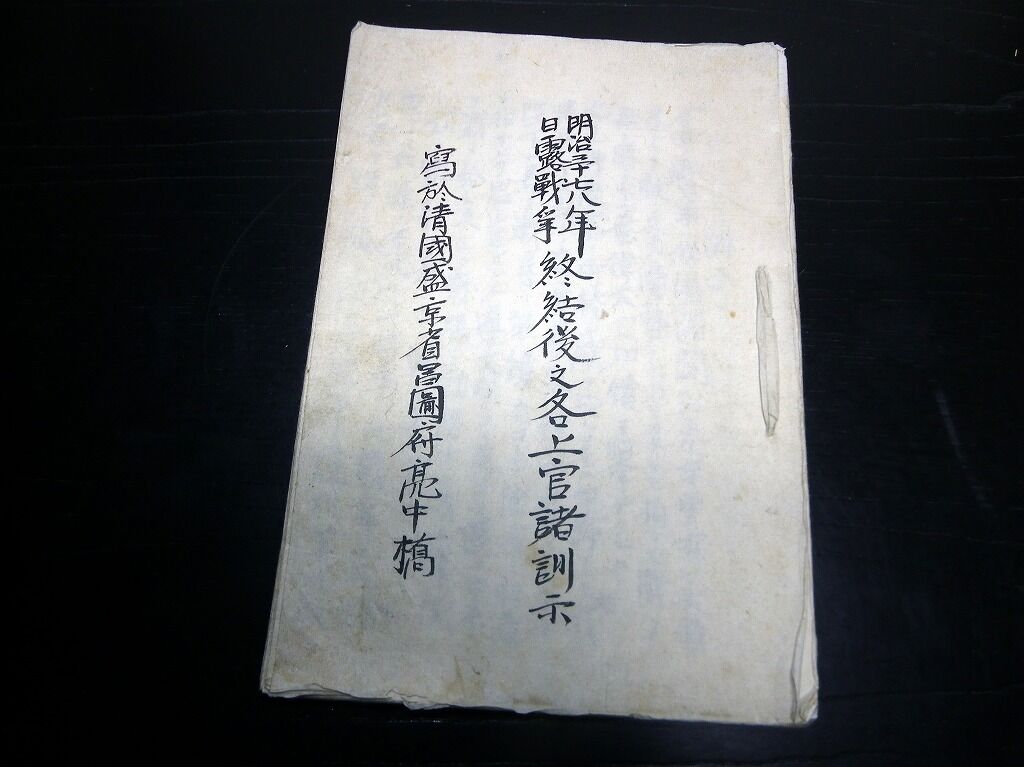 明治三十七八年
日露戰爭
終結後之各上官諸訓示
寫於清國盛京省昌圖府亮中橋